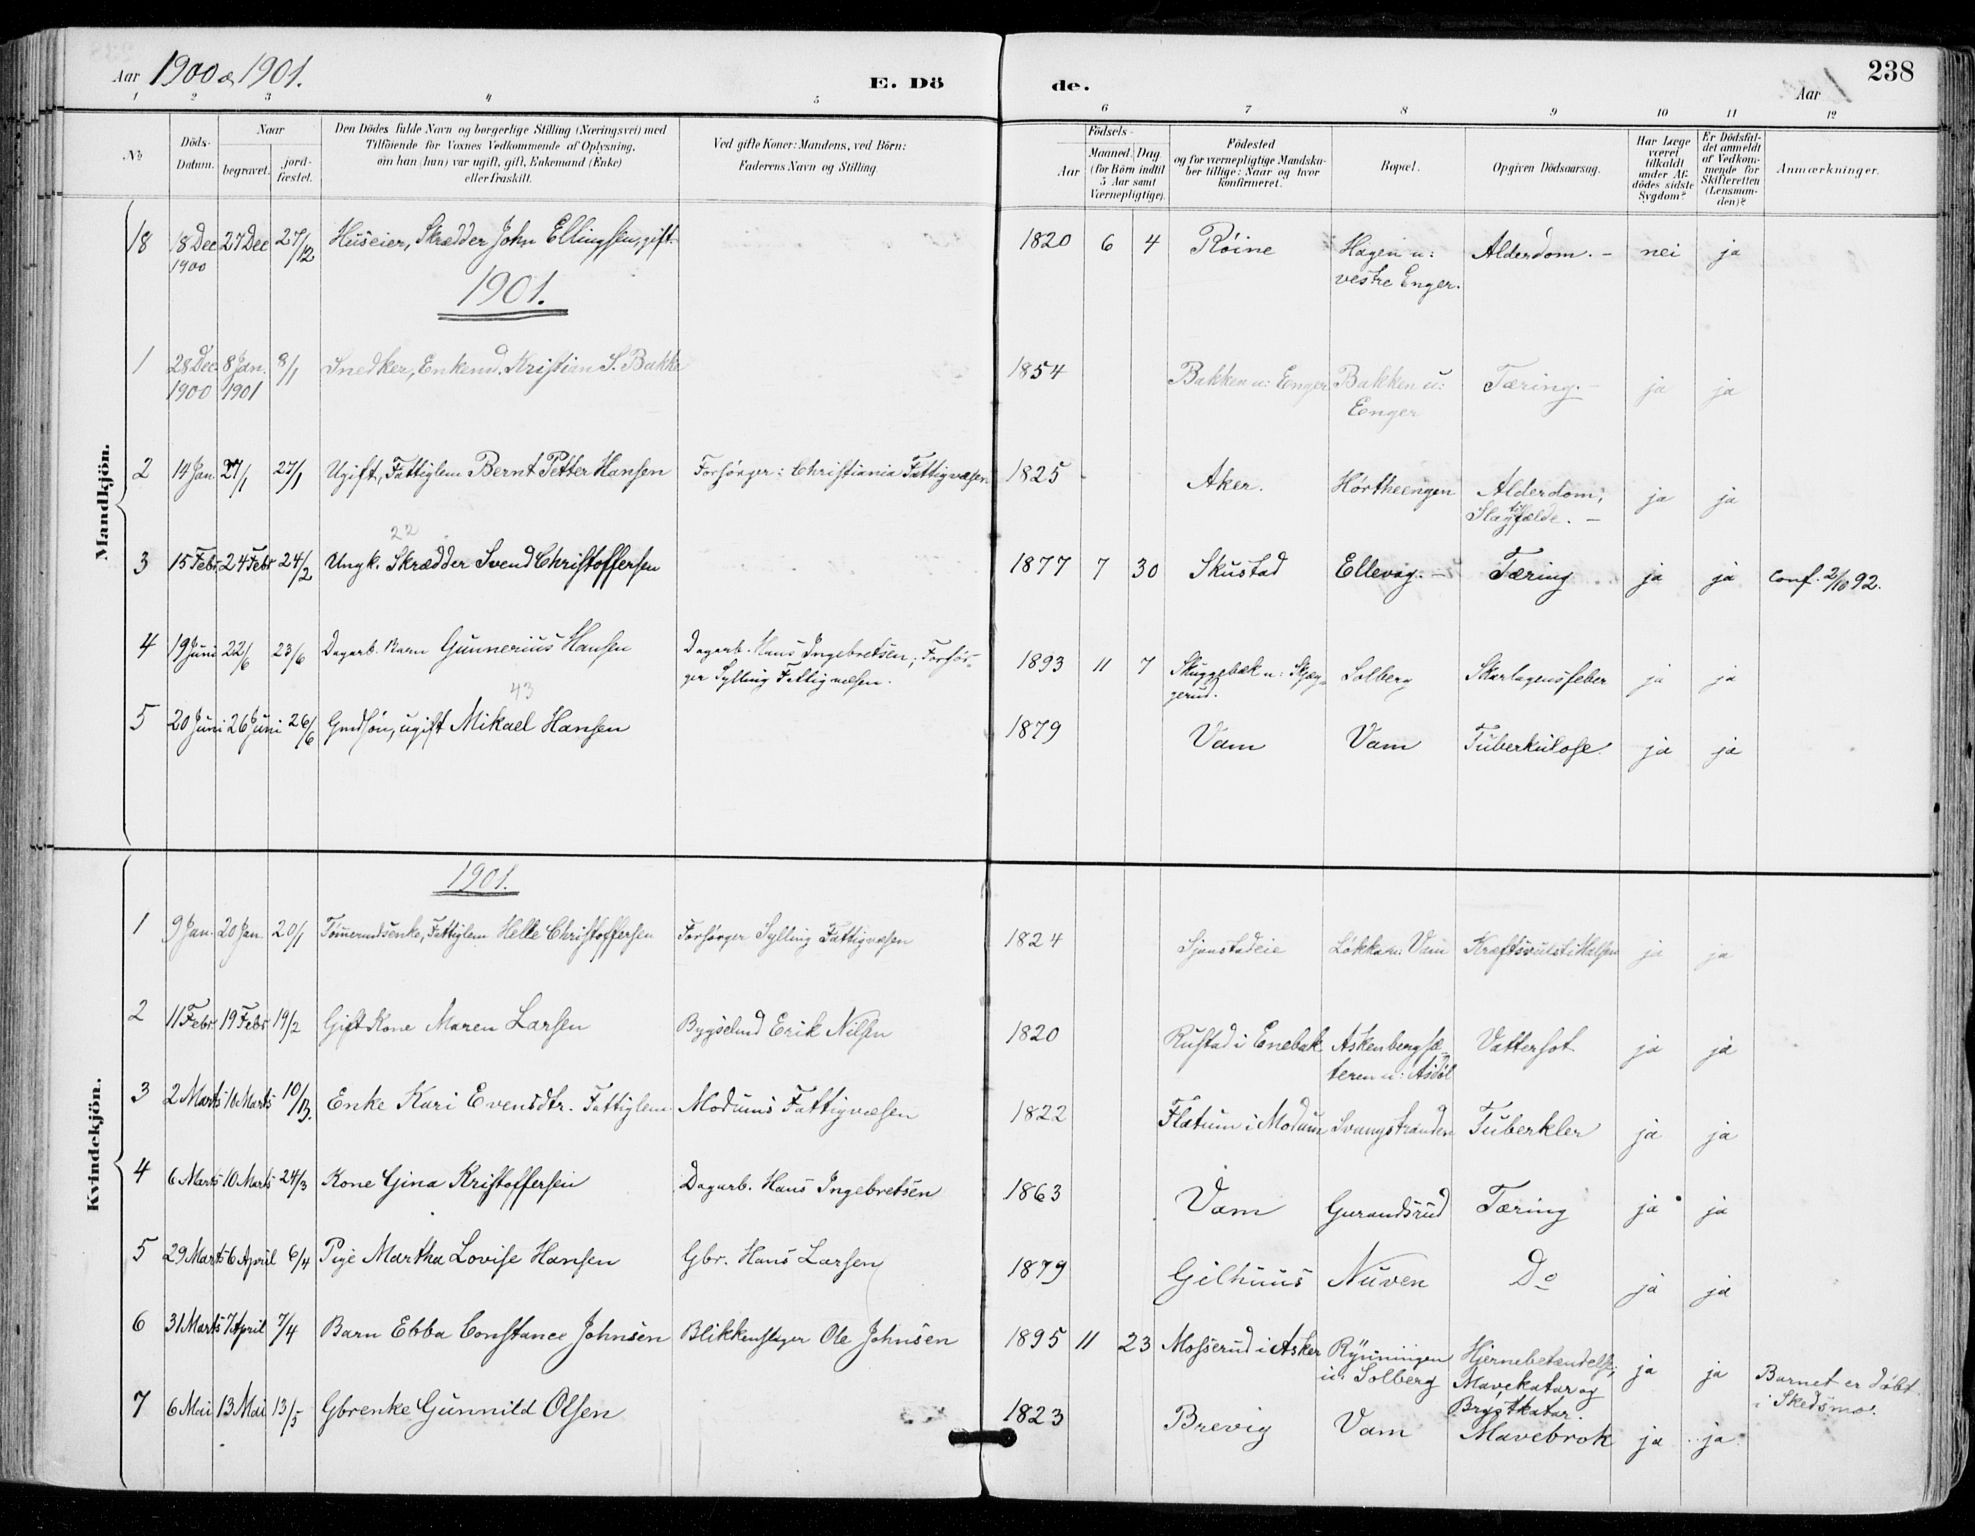 Aar 1900 & 1901. E. Dö de. Aar 238
1 2 3 4 5 6 7 8 9 10 11 12
№ Döds-Datum. Naar begravet. jordfæstet. Den Dödes fulde Navn og borgerlige Stilling (Næringsvei) med Tilföiende for Voxnes Vedkommende af Oplysning, om han (hun) var ugift, gift, Enkemand (Enke) eller fraskilt. Ved gifte Koner: Mandens, ved Börn: Faderens Navn og Stilling. Födsels- Aar Maaned. Dag. (for Børn indtil 5 Aar samt Værnepligtige). Födested og for værnepligtige Mandskaber tillige: Naar og hvor konfirmeret. Bopæl. Opgiven Dödsaarsag. Har Læge været tilkaldt under Afdödes sidste Sygdom? Er Dödsfaldet anmeldt af Vedkommende for Skifteretten (Lensmanden)? Anmærkninger.
Mandkjön.
18 18 Dec 1900 27 Dec 27/12 Huseier, Skrædder John Ellingsen, gift. 1820 6 4 Röine Hagen u: vestre Enger. Alderdom. - nei ja
1901.
1 28 Dec. 1900 8 Jan. 1901 8/1 Snedker, Enkemd. Kristian S. Bakke 1854 Bakken u: Enger Bakken u: Enger Tæring. - ja ja
2 14 Jan. 27/1 27/1 Ugift, Fattiglem Bernt Petter Hansen Forsörger: Christiania Fattigvæsen 1825 Aker. Hörtheengen Alderdom, Slagtilfælde. - ja ja
22
3 15 Febr 24 Febr 24/2 Ungk. Skrædder Svend Christoffersen 1877 7 30 Skustad Ellevog. - Tæring ja ja Conf. 2/10 92.
4 19 Juni 22/6 23/6 Dagarb. Barn Gunnerius Hansen Dagarb. Hans Ingebretsen; Forsörger Sylling Fattigvæsen. 1893 11 7 Skuggebæk u: Skjæggerud. Solberg Skarlagensfeber ja ja
43
5 20 Juni 26 Juni 26/6 Gmdsön, ugift Mikael Hansen 1879 Vam Vam Tuberkulose. ja ja
Kvindekjön.
1901.
1 9 Jan. 20 Jan 20/1 Tömmermdsenke, Fattiglem Helle Christoffersen Forsörger Sylling Fattigvæsen 1824 Sjønstadeie Lökka u: Vam Kræftsvulst i Halsen ja ja
2 11 Febr. 19 Febr 19/2 Gift Kone Maren Larsen Bygselmd Erik Nilsen 1820 Rustad i Enebak Askenbergsæteren u: Asdöl Vattersot ja ja
3 2 Marts 10 Marts 10/3. Enke Kari Evensdtr. Fattiglem Modums Fattigvæsen 1822 Flatum i Modum Svangstranden Tuberkler ja ja
4 6 Marts 10 Marts 24/3 Kone Gina Kristoffersen Dagarb. Hans Ingebretsen 1863 Vam Gurandsrud Tæring ja ja
5 29 Marts 6 April 6/4 Pige Martha Lovise Hansen Gbr. Hans Larsen 1879 Gilhuus Nuven Do ja ja
6 31 Marts 7 April 7/4 Barn Ebba Constance Johnsen Blikkenslager Ole Johnsen 1895 11 23 Mosserud i Asker Rÿnningen u: Solberg Hjernebetændelse, Mavekatar og Brystkatar. ja ja Barnet er döbt i Skedsmo.
7 6 Mai 13 Mai 13/5 Gbrenke Gunnild Olsen 1823 Brevig Vam Mavebrok ja ja